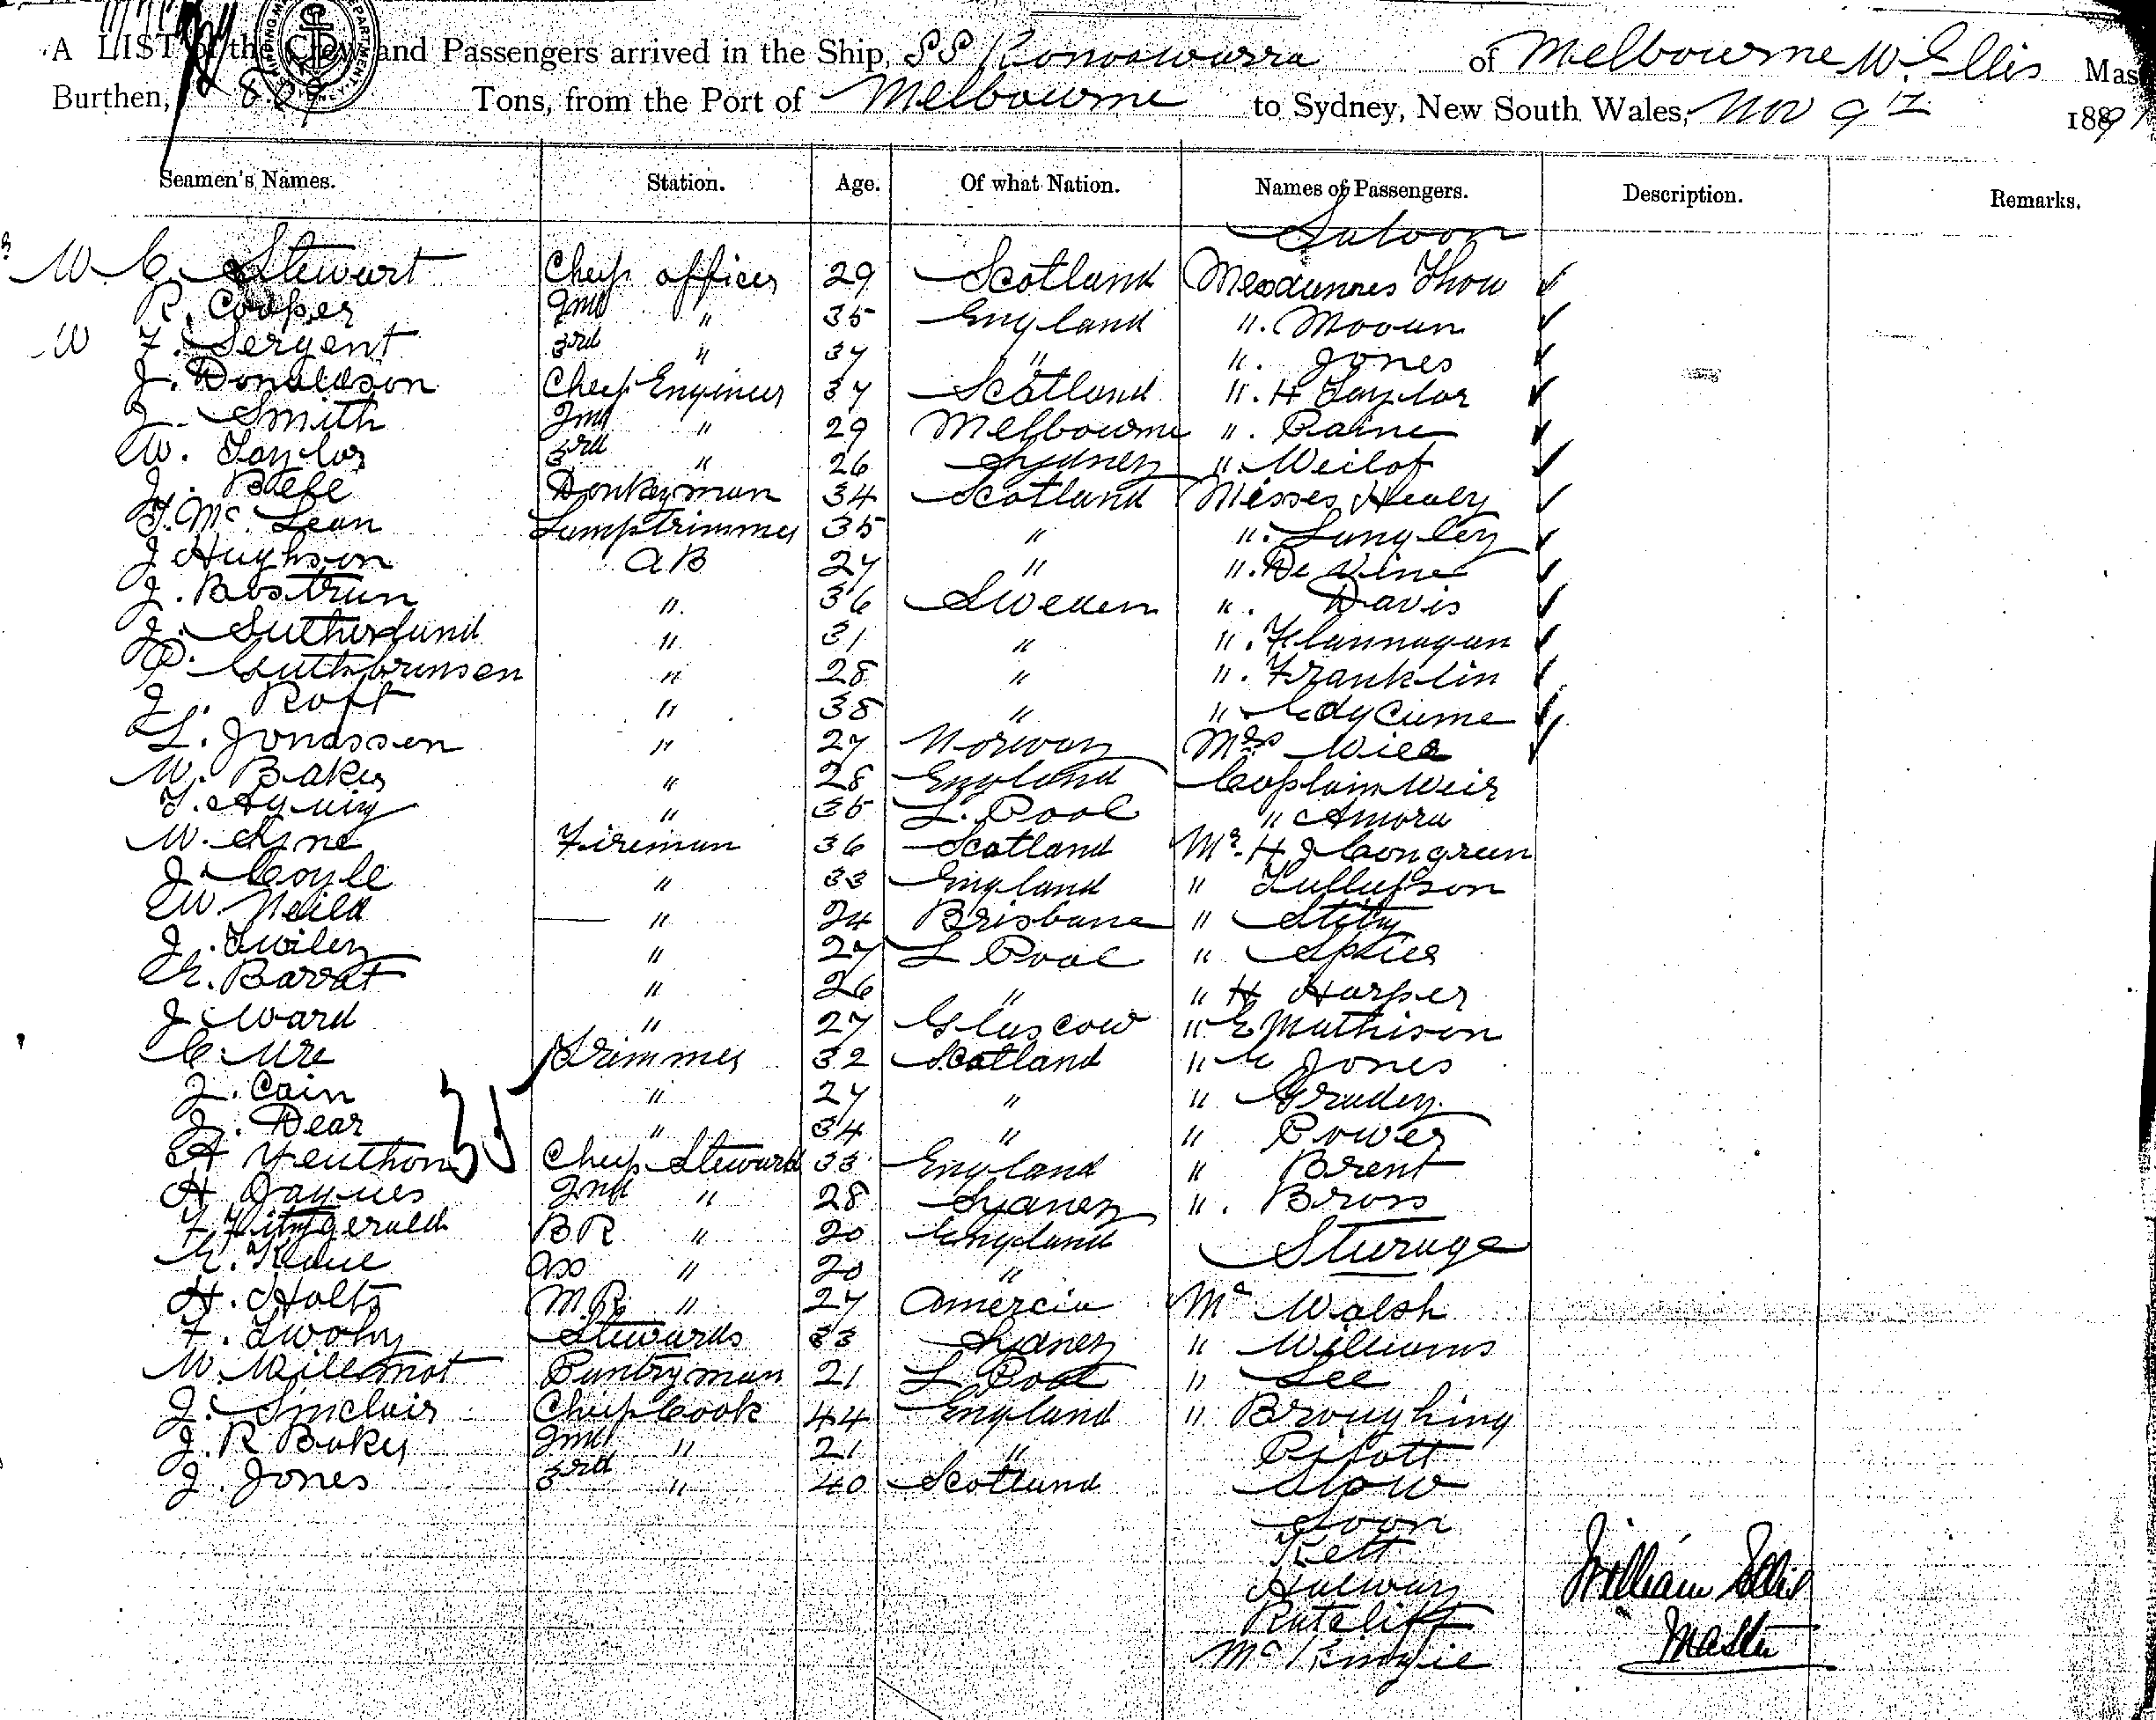 A LIST of the Crew and Passengers arrived in the Ship, SS Konoowarra of Melbourne W. Ellis Mas
Burthen, 829 Tons, from the Port of Melbourne to Sydney, New South Wales, Nov 9th 1891
Seamen's Names. Station. Age. Of what Nation. Names of Passengers. Description. Remarks.
Saloon
W. C. Stewart Chief officer 29 Scotland Mesdammes Thow
R. Cooper 2nd " 35 England " Mooun
W F. Sergent 3rd " 37 " " Jones
J. Donaldson Chief Engineer 37 Scotland " H Taylor
J. Smith 2nd " 29 Melbourne " Paine
W. Taylor 3rd " 26 Sydney "
J. Donkeyman 34 Scotland Misses Healy
T. Mc Lean Lamptrimmer 35 " " Langley
J Hughson AB 27 " " De Vine
J. Bostrun " 36 Sweden " Davis
J. Sutherland " 31 " " Flannagan
P. Guthbrunsen " 28 " " Franklin
J. Roft " 38 " "
L. Jonassen " 27 Norway Mrs
W. Baker " 28 England Captain Weir
T. " 35 L. Pool " Amora
W. Fireman 36 Scotland Mr H J Congreen
J. Coyle " 33 England " Tullufson
W. Neild " 24 Brisbane "
J. Twiley " 27 L Pool " Spiers
E. Barrat " 26 " " H Harper
J Ward " 27 Glascow " E Mathison
C. Ure Trimmer 32 Scotland " C Jones
J. Cain " 27 " " Gradey
J. Dear " 34 " " Power
35
A Yenthon Chief Steward 33 England " Brent
H Jaques 2nd " 28 Sydney " Bross
F Fitzgerald BR " 20 England Sturage
E. Kane ass " 20 "
H. Holtz M.R. " 27 Amercia Mr Walsh
F. Twohy Stewards 33 Sydney " Williams
W. Willemot Pantryman 21 L Pool " Lee
J. Sinclair Chief Cook 44 England " Broughing
J. R Baker 2nd " 21 " Pifott
J. Jones 3rd " 40 Scotland Slow
Soon
Kett
Halway
William Ellis
Ratclift
Master